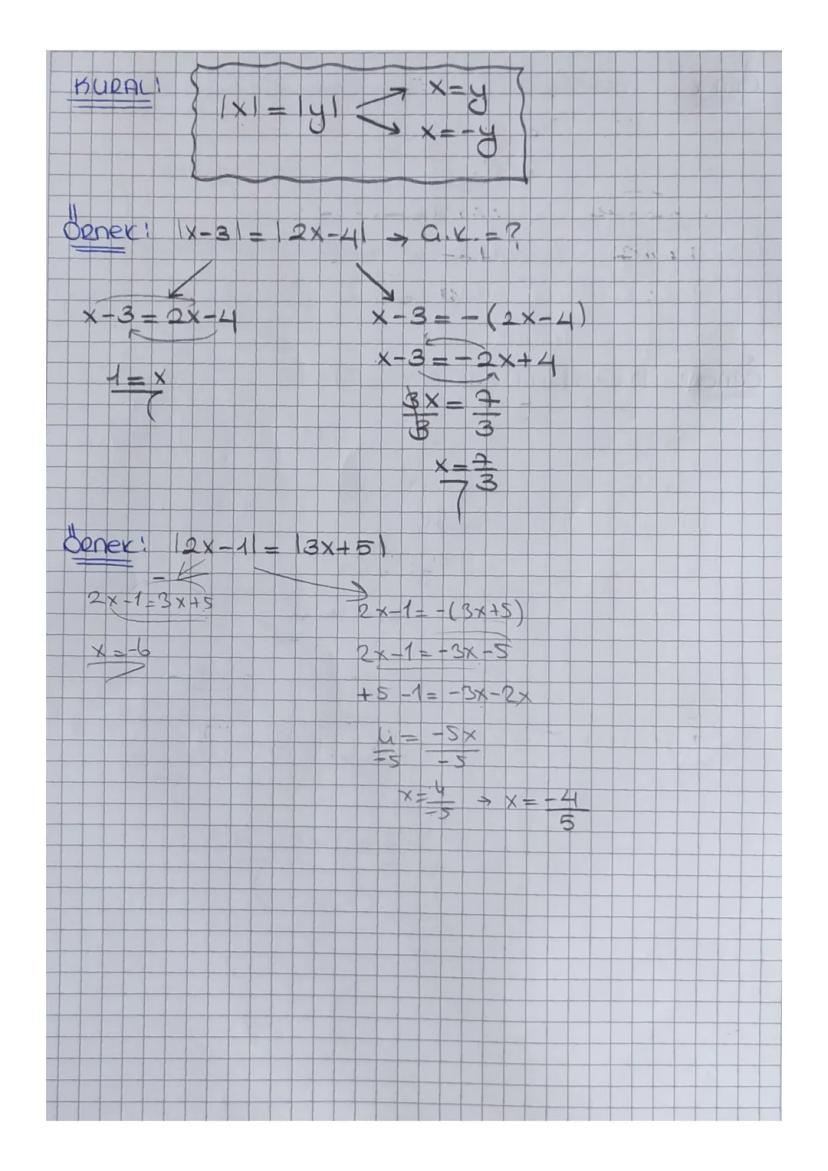 KURAL:
|x| = |y| → x=y
→ x=-y
Örnek: |x-3| = |2x-4| → a.k.=?
x-3 = 2x-4
x-3 = -(2x-4)
x-3 = -2x+4
1 = x
3x/3 = 7/3
x = 7/3
Örnek: |2x-1| = |3x+5|
2x-1=3x+5
x=-6
2x-1 = -(3x+5)
2x-1 = -3x-5
+5 -1 = -3x-2x
4/-5 = -5x/-5
x = 4/-5 → x = -4/5